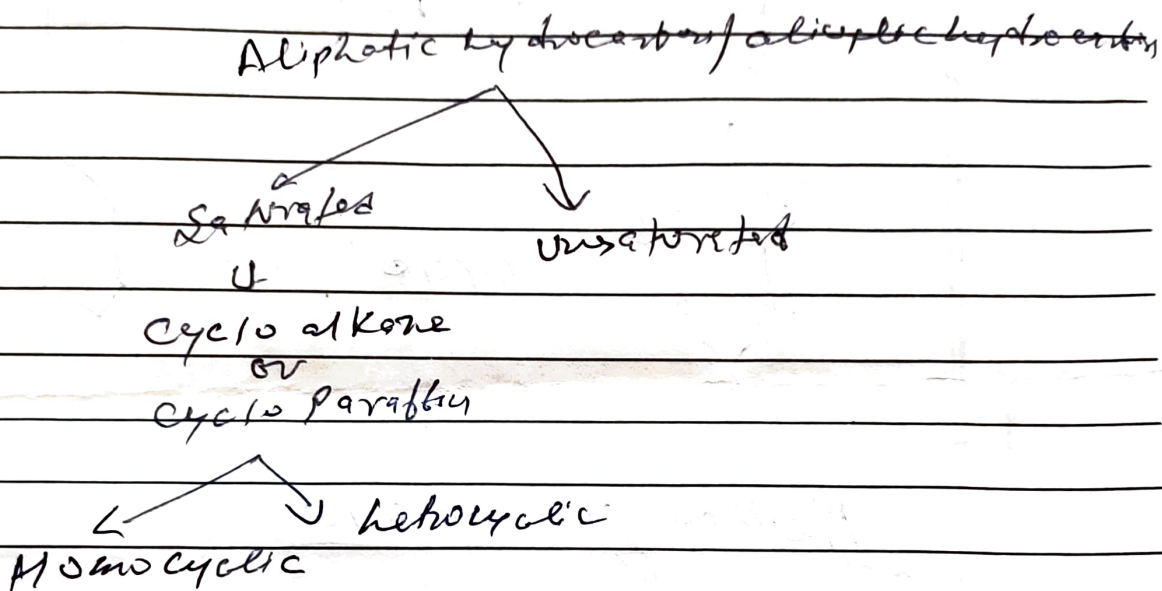 Aliphatic hydrocarbon/alicyclic hydrocarbon
Saturated
Unsaturated
Cyclo alkane
or
Cyclo Paraffin
hetrocyclic
Homocyclic